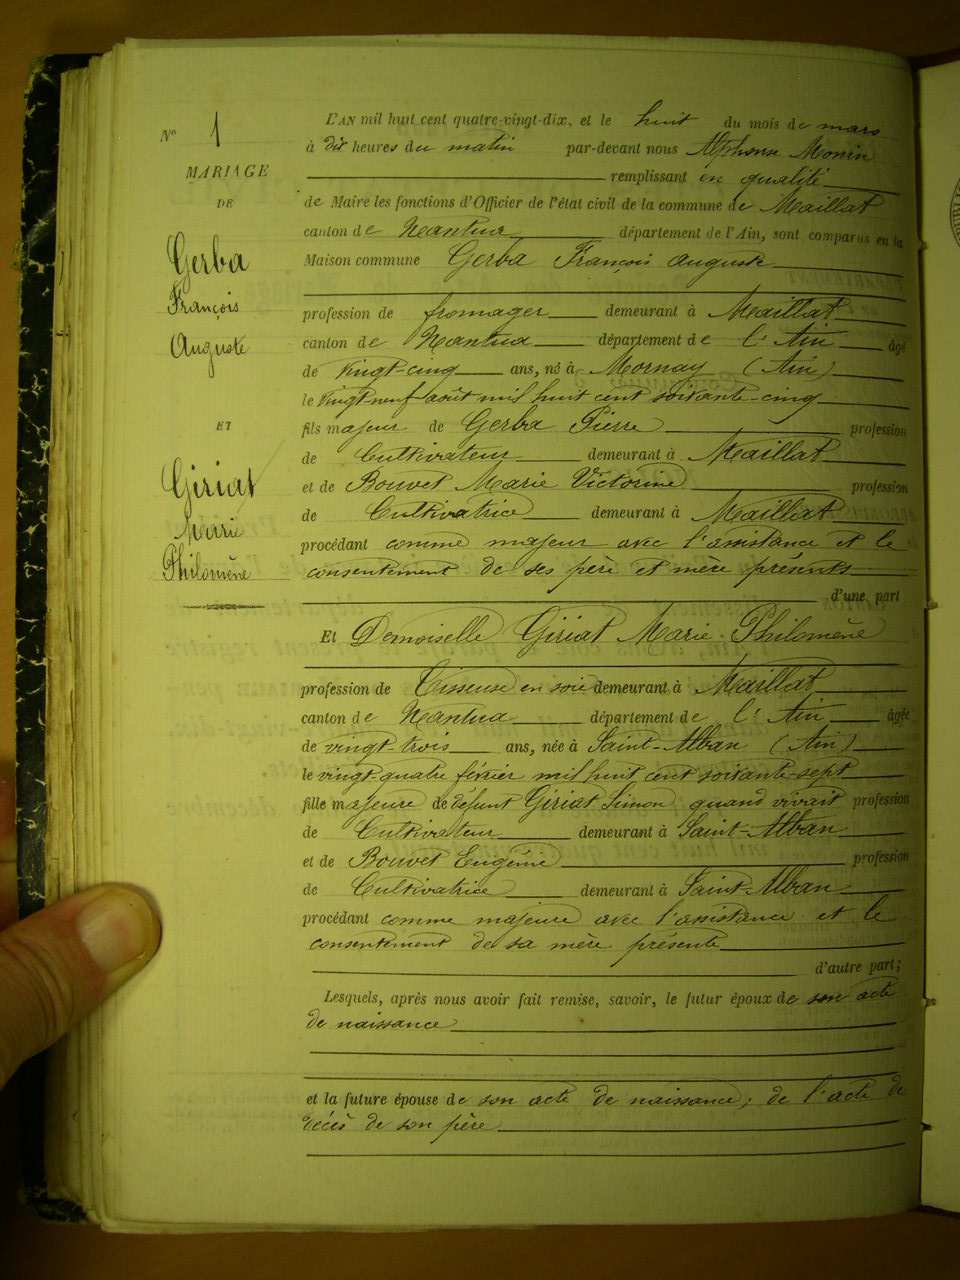 N° 1
MARIAGE
DE
Gerba
François
Auguste
ET
Giriat
Marie
Philomène
L'AN mil huit cent quatre-vingt-dix, et le huit du mois de mars
à dix heures du matin par-devant nous Alphonse Monin
remplissant en qualité
de Maire les fonctions d'Officier de l'état civil de la commune de Maillat
canton de Nantua département de l'Ain, sont comparus en la
Maison commune Gerba François Auguste
profession de fromager demeurant à Maillat
canton de Nantua département de l'Ain âgé
de vingt-cinq ans, né à Mornay (Ain)
le vingt-neuf août mil huit cent soixante-cinq
fils majeur de Gerba Pierre profession
de Cultivateur demeurant à Maillat
et de Bouvet Marie Victorine profession
de Cultivatrice demeurant à Maillat
procédant comme majeur avec l'assistance et le
consentement de ses père et mère présents
d'une part
Et Demoiselle Giriat Marie-Philomène
profession de Tisseuse en soie demeurant à Maillat
canton de Nantua département de l'Ain âgée
de vingt-trois ans, née à Saint-Alban (Ain)
le vingt-quatre février mil huit cent soixante-sept
fille majeure de défunt Giriat Simon, quand vivait profession
de Cultivateur demeurant à Saint-Alban
et de Bouvet Eugénie profession
de Cultivatrice demeurant à Saint-Alban
procédant comme majeure avec l'assistance et le
consentement de sa mère présente
d'autre part;
Lesquels, après nous avoir fait remise, savoir, le futur époux de son acte
de naissance
et la future épouse de son acte de naissance; de l'acte de
décès de son père